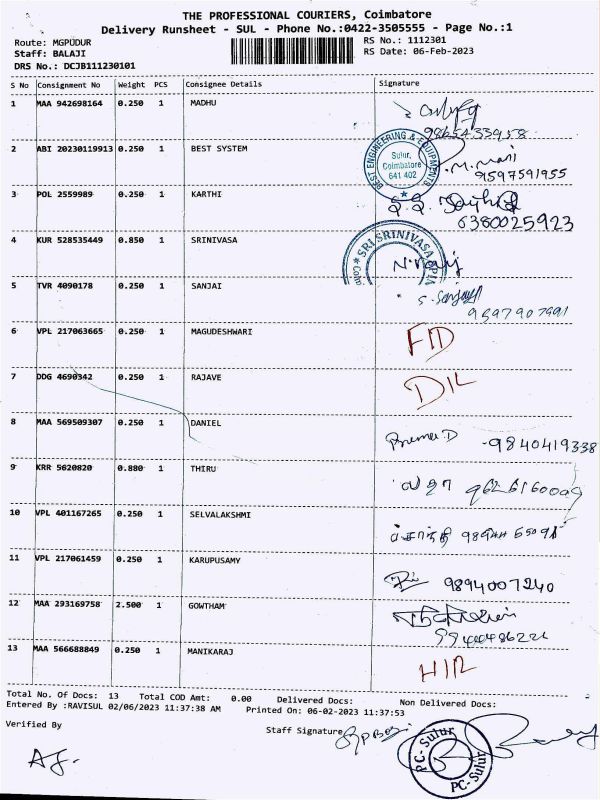 THE PROFESSIONAL COURIERS, Coimbatore
Delivery Runsheet - SUL - Phone No.:0422-3505555 - Page No.:1
Route: MGPUDUR
RS No.: 1112301
Staff: BALAJI
RS Date: 06-Feb-2023
DRS No.: DCJB111230101
S No Consignment No Weight PCS Consignee Details Signature
1 MAA 942698164 0.250 1 MADHU
9865433958
2 ABI 20230119913 0.250 1 BEST SYSTEM
BEST ENGINEERING & EQUIPMENTS
Sulur,
Coimbatore
641 402
M. Mani
9597591955
3 POL 2559989 0.250 1 KARTHI
6380025923
4 KUR 528535449 0.850 1 SRINIVASA
SRI SRINIVASA
5 TVR 4090178 0.250 1 SANJAI
S. Sanjay
9597907991
6 VPL 217063665 0.250 1 MAGUDESHWARI
7 DDG 4690342 0.250 1 RAJAVE
D/L
8 MAA 569509307 0.250 1 DANIEL
-9840419338
9 KRR 5620820 0.880 1 THIRU
10 VPL 401167265 0.250 1 SELVALAKSHMI
11 VPL 217061459 0.250 1 KARUPUSAMY
9894007240
12 MAA 293169758 2.500 1 GOWTHAM
13 MAA 566688849 0.250 1 MANIKARAJ
Total No. Of Docs: 13 Total COD Amt: 0.00 Delivered Docs: Non Delivered Docs:
Entered By :RAVISUL 02/06/2023 11:37:38 AM Printed On: 06-02-2023 11:37:53
Verified By
Staff Signature
PC- Sulur
PC-Sulur